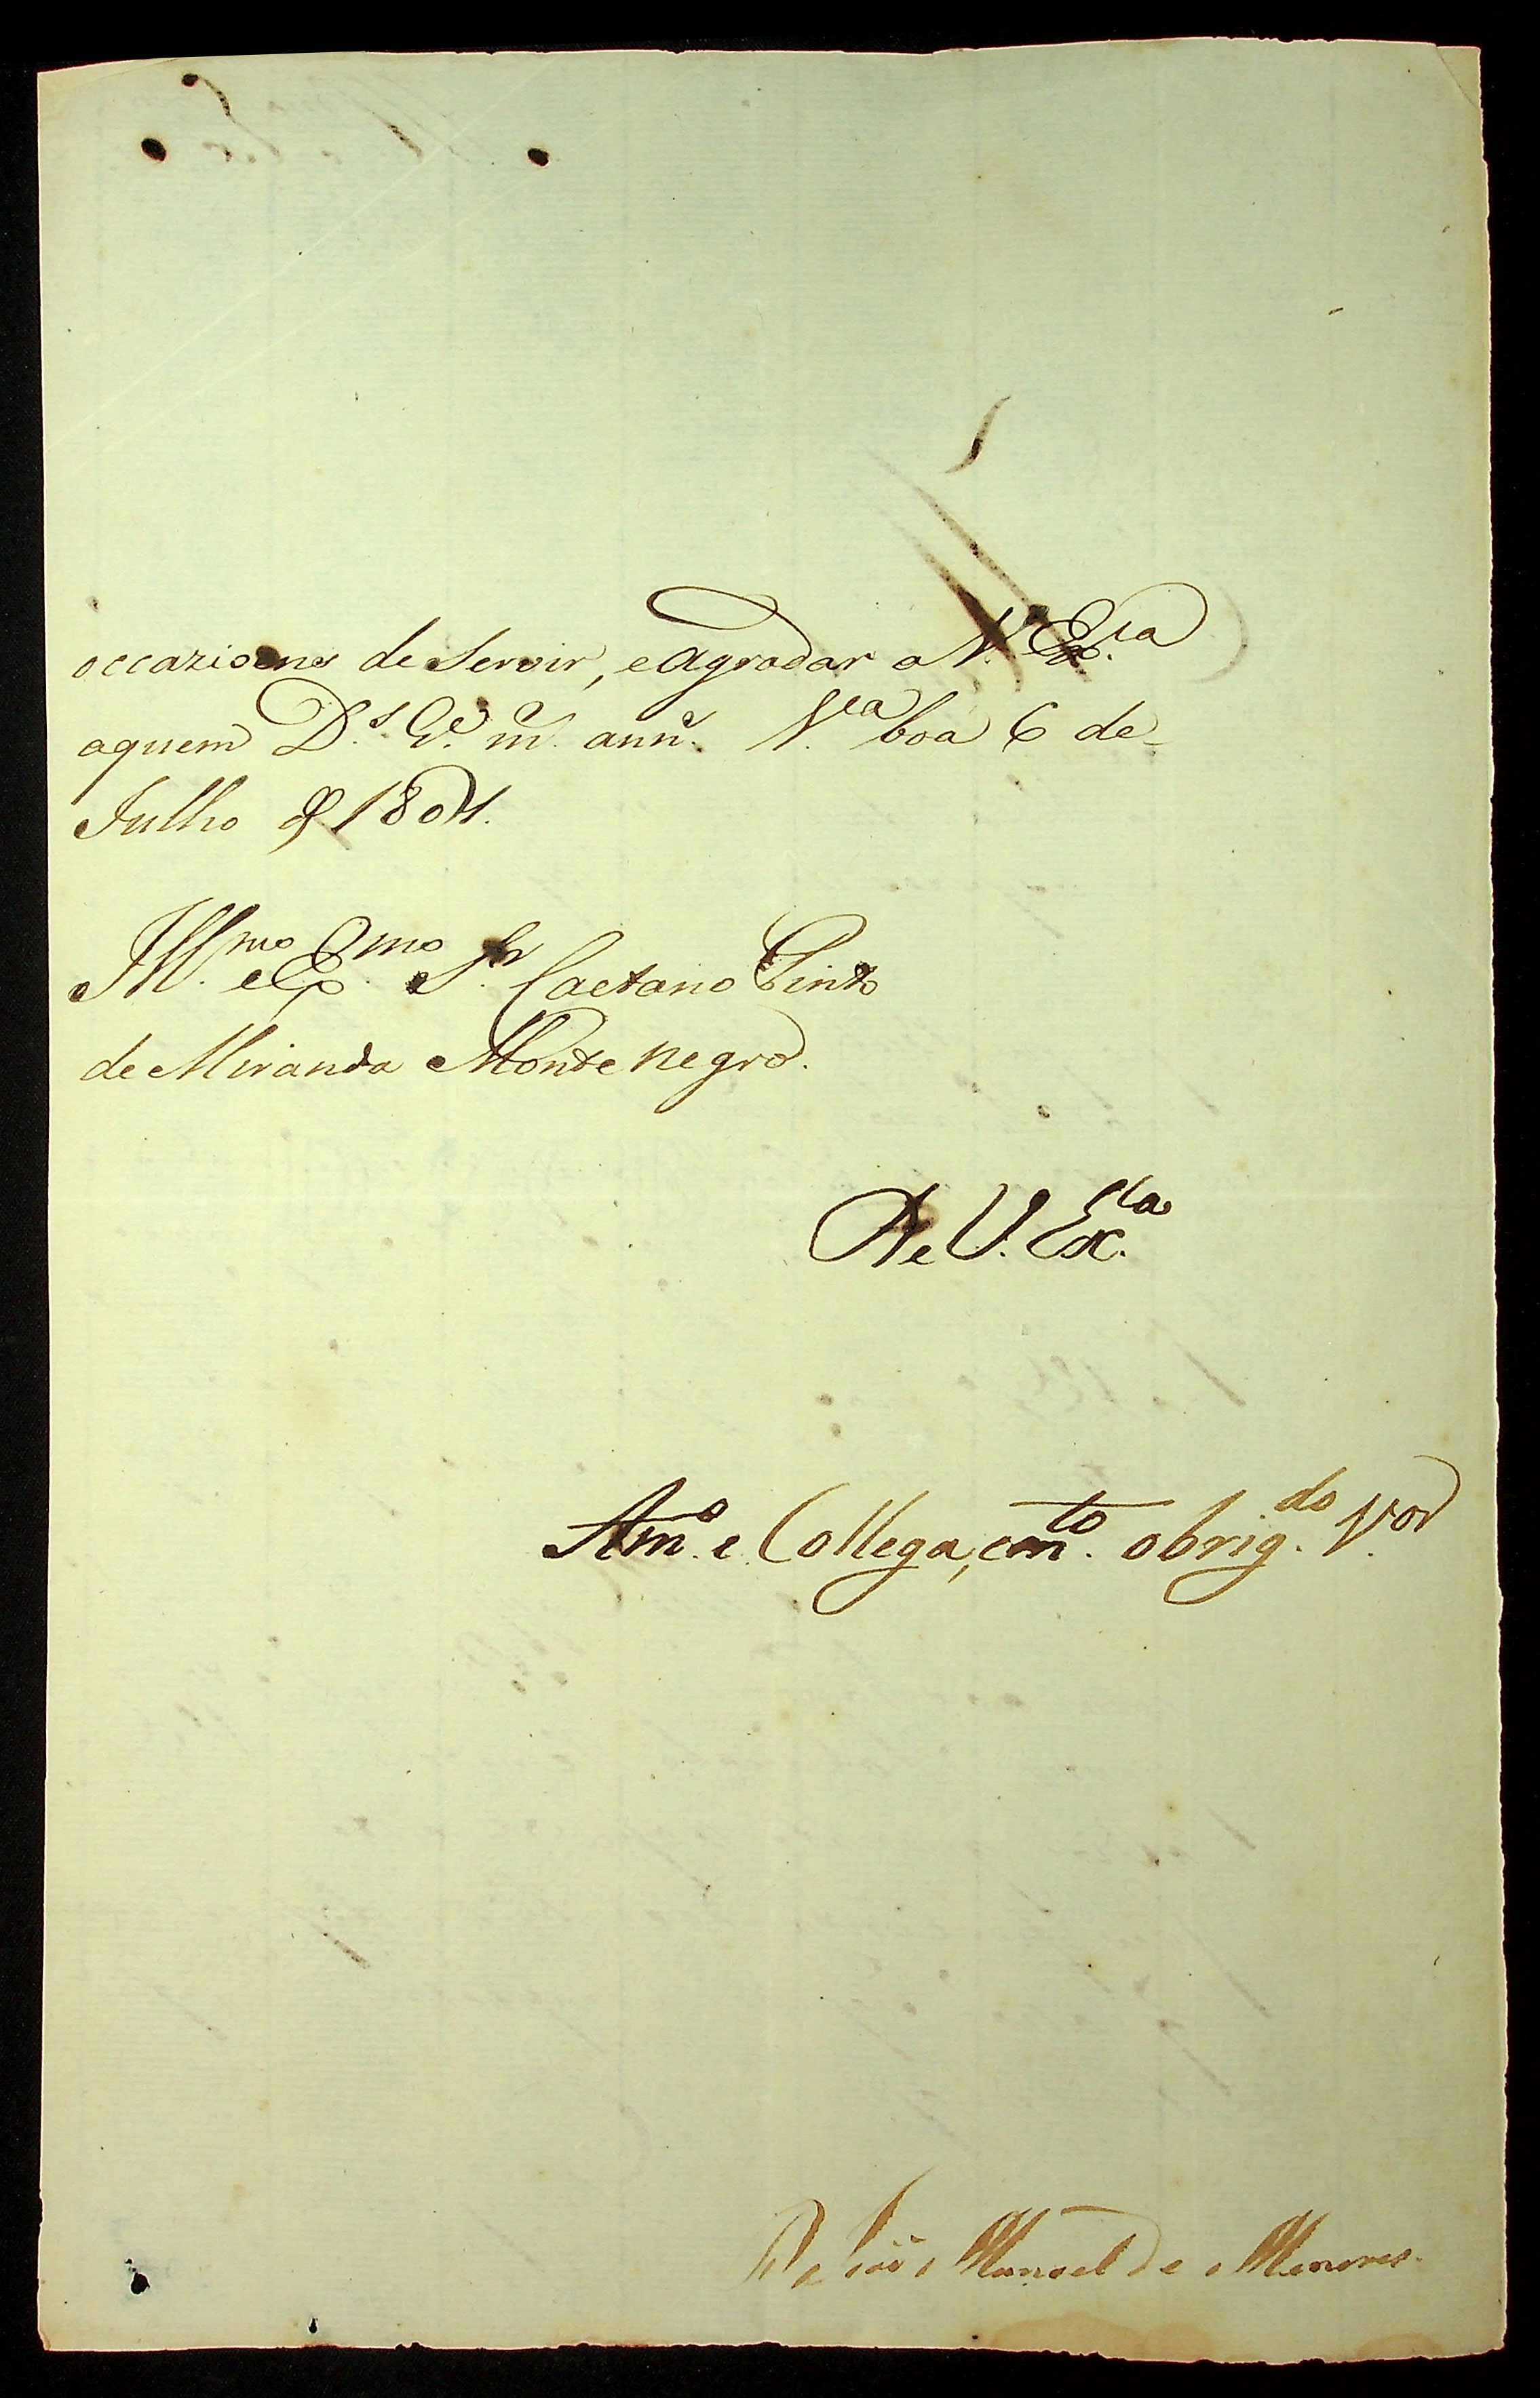 occazioens de Servir, e agradar a V. Ex.cia
aquem D.s G.e m.s ann.s V.la boa 6 de
Julho de 1801.
Ill.mo e Ex.mo S.r Caetano Pinto
de Miranda Monte negro.
De V. Ex.cia
Am.o e Collega, e m.to obrig.do V.or
D. João Manoel de Menezes.